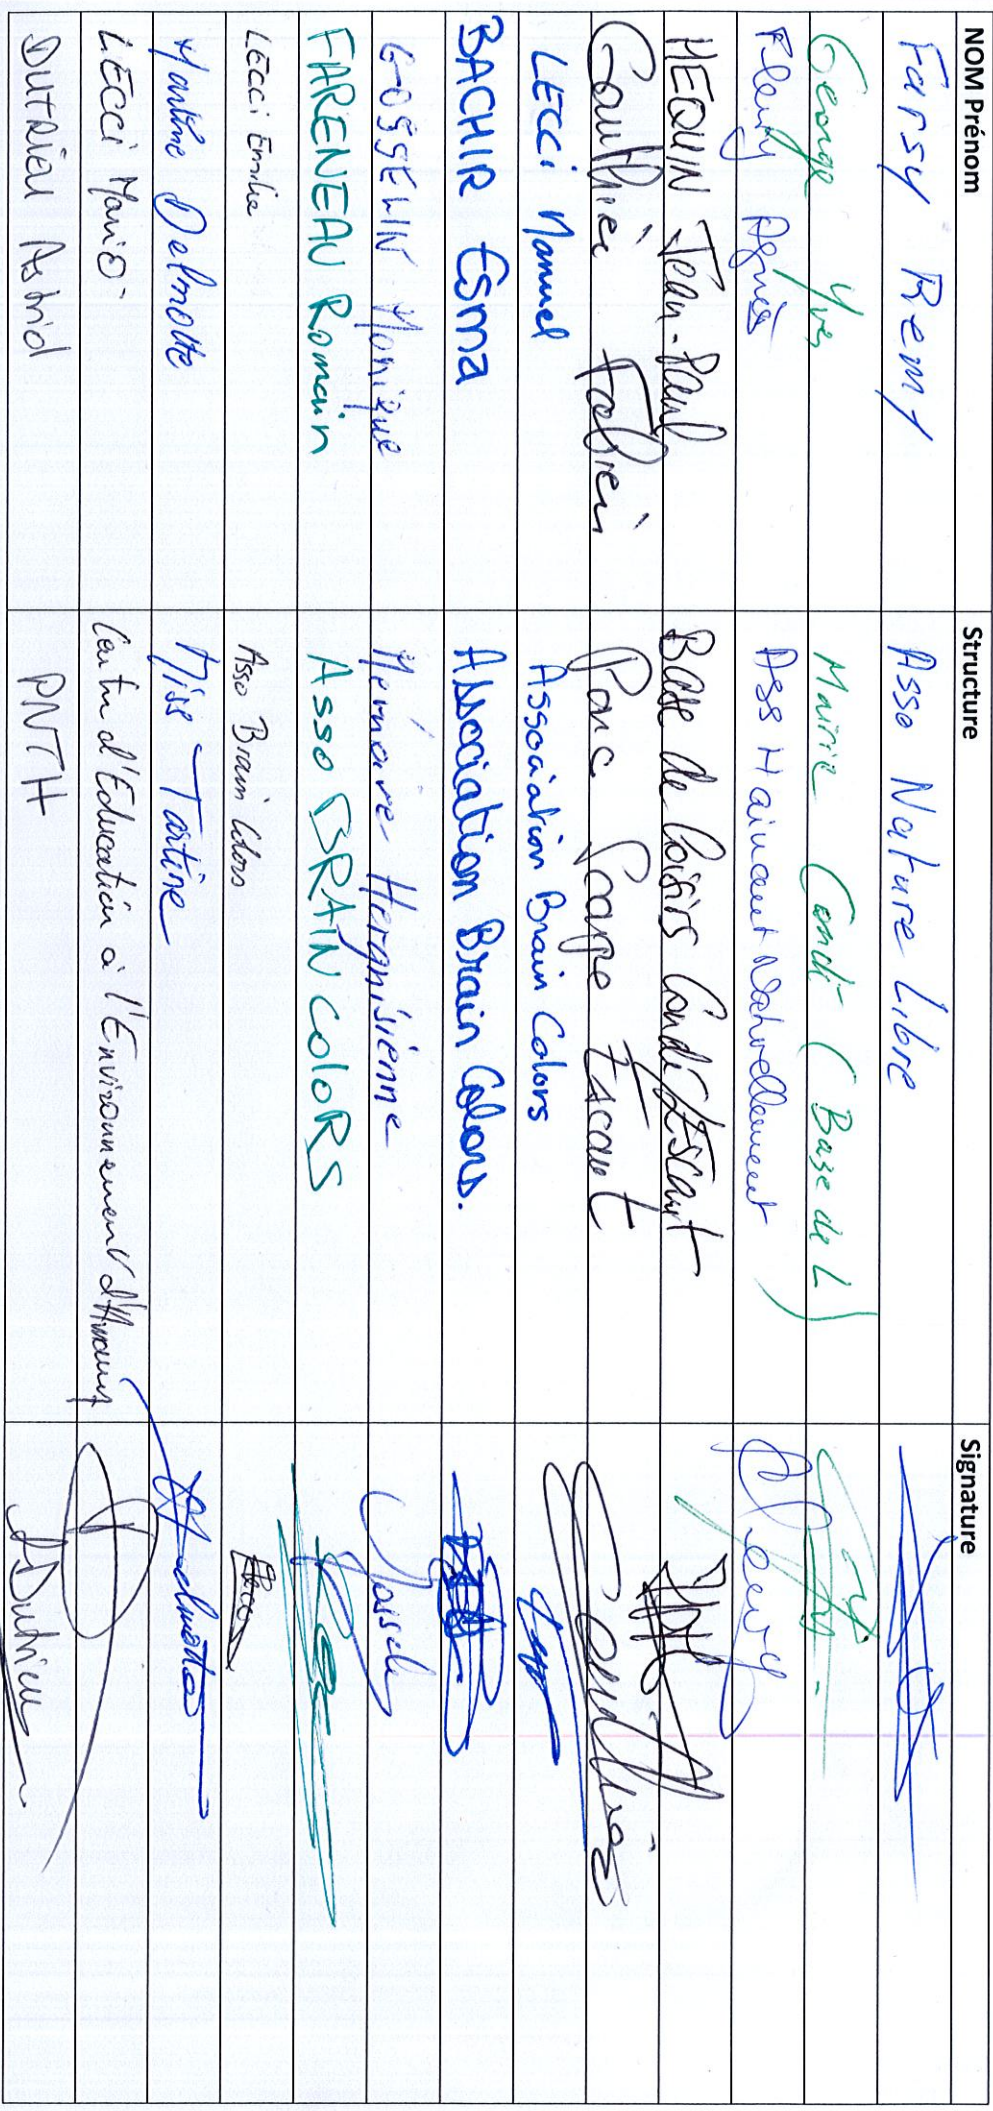 NOM Prénom Structure Signature
Farsy Remy Asso Nature Libre
George Yves Mairie Condé (Base de L)
Fleury Agnès Ass Hainaut Naturellement
MEQUIN Jean-Paul Base de Loisirs Condé/Escaut
Gauthier Fabien Parc Scarpe Escaut
LECCi Manuel Association Brain Colors
BACHIR Esma Association Brain Colors.
GOSSELIN Monique Mémoire Hergnisienne
FARENEAU Romain Asso BRAIN COLORS
LECCi Emilie Asso Brain Colors
Martine Delmotte Miss Tartine
LECCi Mario Centre d'Education à l'Environnement d'Amaury
DUTRIEU Astrid PNTH